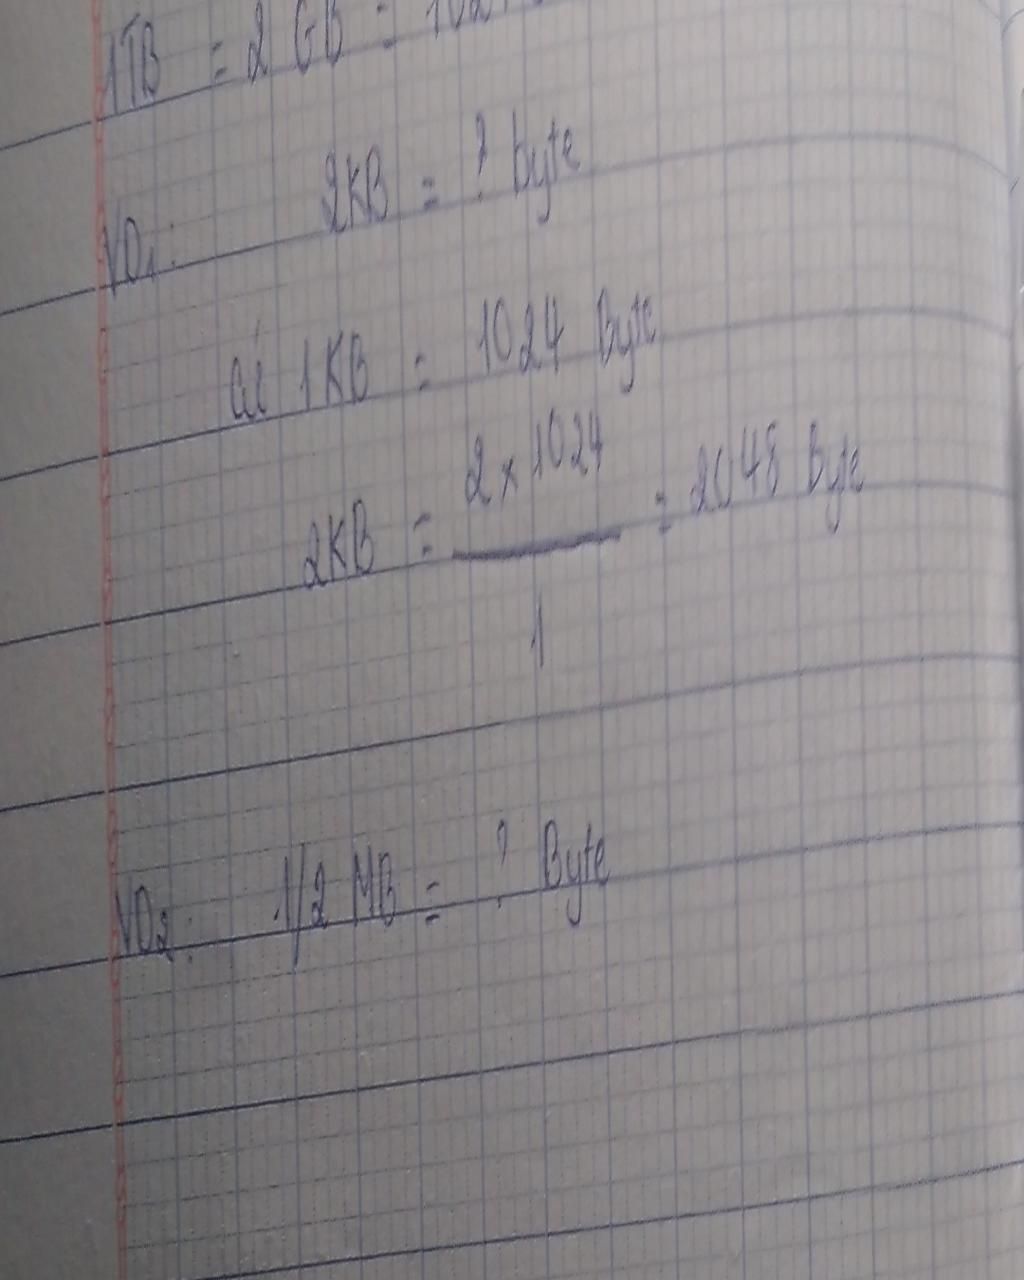 1TB = 2 GB = 102
VD1: 2KB = ? byte
cứ 1KB = 1024 Byte
2KB = 2 x 1024 = 2048 Byte
1
VD2: 1/2 MB = ? Byte